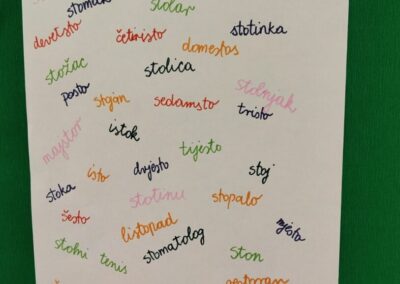 stomak
stolar
stotinka
devetsto
četiristo
domestos
stožac
stolica
stolnjak
posto
stojan
sedamsto
tristo
majstor
istok
tijesto
isto
dvjesto
stoj
stoka
stotinu
stopalo
šesto
listopad
mjesto
stolni tenis
stomatolog
ston